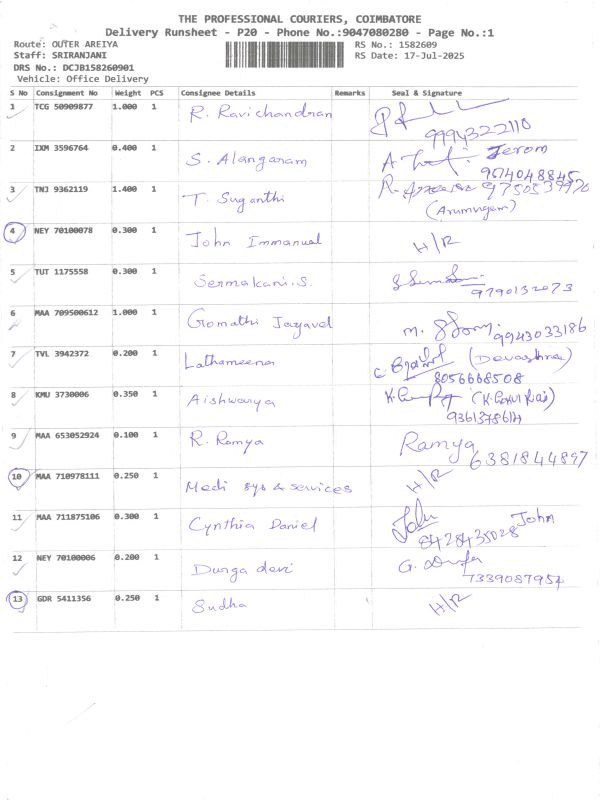 THE PROFESSIONAL COURIERS, COIMBATORE
Delivery Runsheet - P20 - Phone No.:9047080280 - Page No.:1
Route: OUTER AREIYA
Staff: SRIRANJANI
DRS No.: DCJB158260901
Vehicle: Office Delivery
RS No.: 1582609
RS Date: 17-Jul-2025
S No Consignment No Weight PCS Consignee Details Remarks Seal & Signature
1 TCG 50909877 1.000 1 R. Ravichandran 9994322110
2 IXM 3596764 0.400 1 S. Alanganam Jerom 9674048845
3 TNJ 9362119 1.400 1 T. Suganthi 9750539970
(Arumugam)
4 NEY 70100078 0.300 1 John Immanual H/R
5 TUT 1175558 0.300 1 Sermakani.S. 9790132073
6 MAA 709500612 1.000 1 Gomathi Jayavel 9943033186
7 TVL 3942372 0.200 1 Lathameena (Devashree)
8056668508
8 KMU 3730006 0.350 1 Aishwarya
9361378614
9 MAA 653052924 0.100 1 R. Ramya Ramya
6381844897
10 MAA 710978111 0.250 1 Medi sys & services H/R
11 MAA 711875106 0.300 1 Cynthia Daniel John
8428435028
12 NEY 70100006 0.200 1 Durga devi G. Durga
7339087954
13 GDR 5411356 0.250 1 Sudha H/R